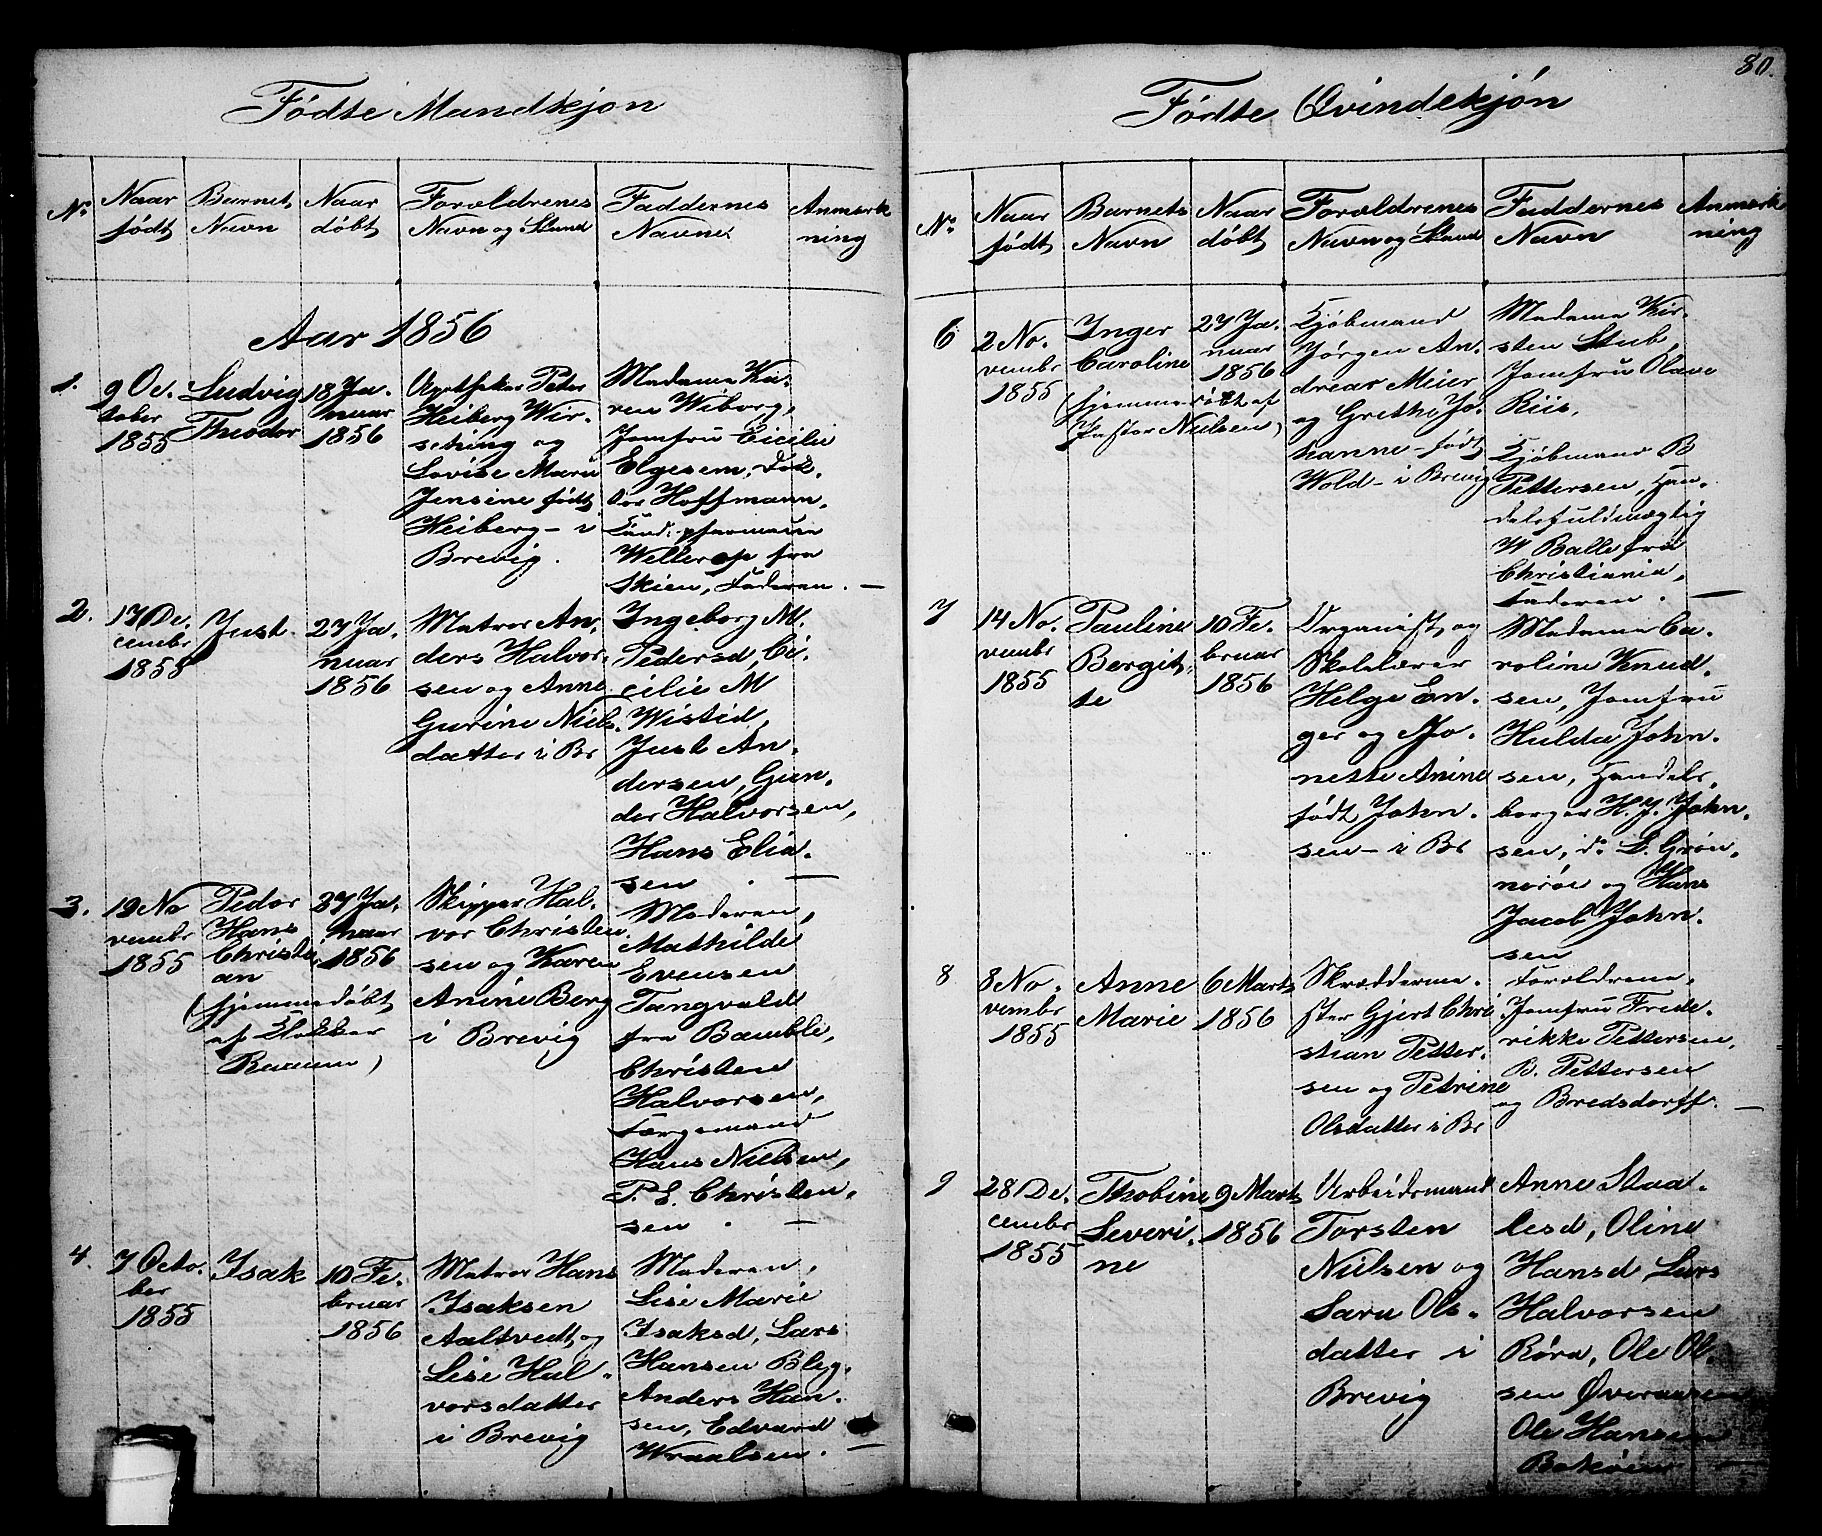 Fødte Mandkjøn
No
Naar
født
Barnets
Navn
Naar
døbt
Forældrenes
Navn og Stand
Faddernes
Navne
Anmærk
ning
Aar 1856
1.
9 Oc.
tober
1855
Ludvig
Theodor
18 Ja.
nuar
1856
Apotheker Peter
Heiberg Wir.
setning og
Lovise Marie
Jensine født
Heiberg - i
Brevig.
Madame Ka.
ren Wiborg,
Jomfru Cicilie
Elgesem, Dok.
tor Hoffmann,
Cand: pharmacia
Wellerop fra
Skien, Faderen. -
2.
17 De.
cembr
1855
Just.
27 Ja.
nuar
1856
Matros An.
ders Halvor.
sen og Anne
Gurine Niels.
datter i Br
Ingeborg M.
Pedersd, Ci.
cilie M
Wistid,
Just An.
dersen, Gun.
der Halvorsen,
Hans Elia.
sen . -
3.
19 No
vembr
1855
Peder
Hans
Christi
an
(hjemmedøbt
af Klokker
Baumm)
27 Ja.
nuar
1856
Skipper Hal.
vor Christen.
sen og Karen
Anine Berg
i Brevig
Moderen,
Mathilde
Evensen
Tangvald
fra Bamble,
Christen
Halvorsen,
Færgemand
Hans Nielsen,
P. E. Christen.
sen . -
4.
7 Octo.
ber
1855
Isak
10 Fe.
bruar
1856
Matros Hans
Isaksen
Aaltvedt, og
Lise Hal.
vorsdatter
i Brevig
Moderen,
Lise Marie
Isaksd, Lars
Hansen Bleg.
Anders Han.
sen, Edvard
Wraalsen. -
80.
Fødte Qvindekjøn
No
Naar
født
Barnets
Navn
Naar
døbt
Forældrenes
Navn og Stand
Faddernes
Navn
Anmærk
ning
6
2 No.
vembr
1855
Inger
Caroline
(hjemmedøbt af
Pastor Nielsen)
27 Ja.
nuar
1856
Kjøbmand
Jørgen An.
dreas Meier
og Grethe Jo.
hanne - født
Wold - i Brevig
Madame Kir.
sten Stub,
Jomfru Olave
Riis,
Kjøbmand B
Pettersen, Han.
delsfuldmægtig
W Balle fra
Christiania,
Faderen. -
7
14 No.
vembr
1855
Pauline
Bergit.
te
10 Fe.
bruar
1856
Organist og
Skolelærer
Helge En.
ger og Jo.
nette Anine
født John.
sen - i Br
Madame Ca.
roline Knud.
sen, Jomfru
Hulda John.
sen, Handels.
borger H. J. John.
sen, do L. Grøn.
nerøe og Hans
Jacob John.
sen
8
8 No.
vembr
1855
Anne
Marie
6 Marts
1856
Skrædderme.
ster Gjert Chri
stian Petter.
sen og Petrine
Olsdatter i Br
Forældrene,
Jomfru Frede.
rikke Pettersen,
B. Pettersen
og Bredsdorff. -
9
28 De.
cembr
1855
Thobine
Severi.
ne
9 Marts
1856
Arbeidsmand
Torsten
Nielsen og
Sara Ols.
datter i
Brevig
Anne Staa.
lesd, Oline
Hansd, Lars
Halvorsen
Røra, Ole Ol.
sen Øveraasen
Ole Hansen
Bakøien -